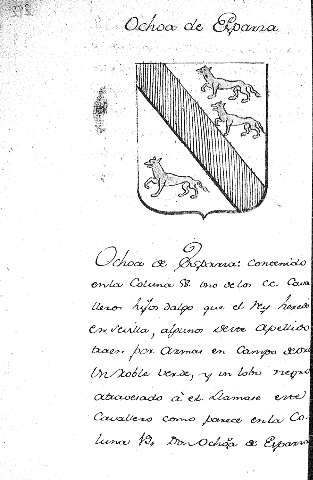 Ochoa de Esparza
Ochoa de Esparza: contenido
en la Coluna 8. uno de los cc Cava
lleros hijos dalgo que el Rey heredo
en Sevilla, algunos deste Apellido
traen por Armas en Campo de oro
Un roble verde, y un lobo negro
atravesado à el llamase este
Cavallero como parece en la Co-
luna Don Ochoa de Esparza